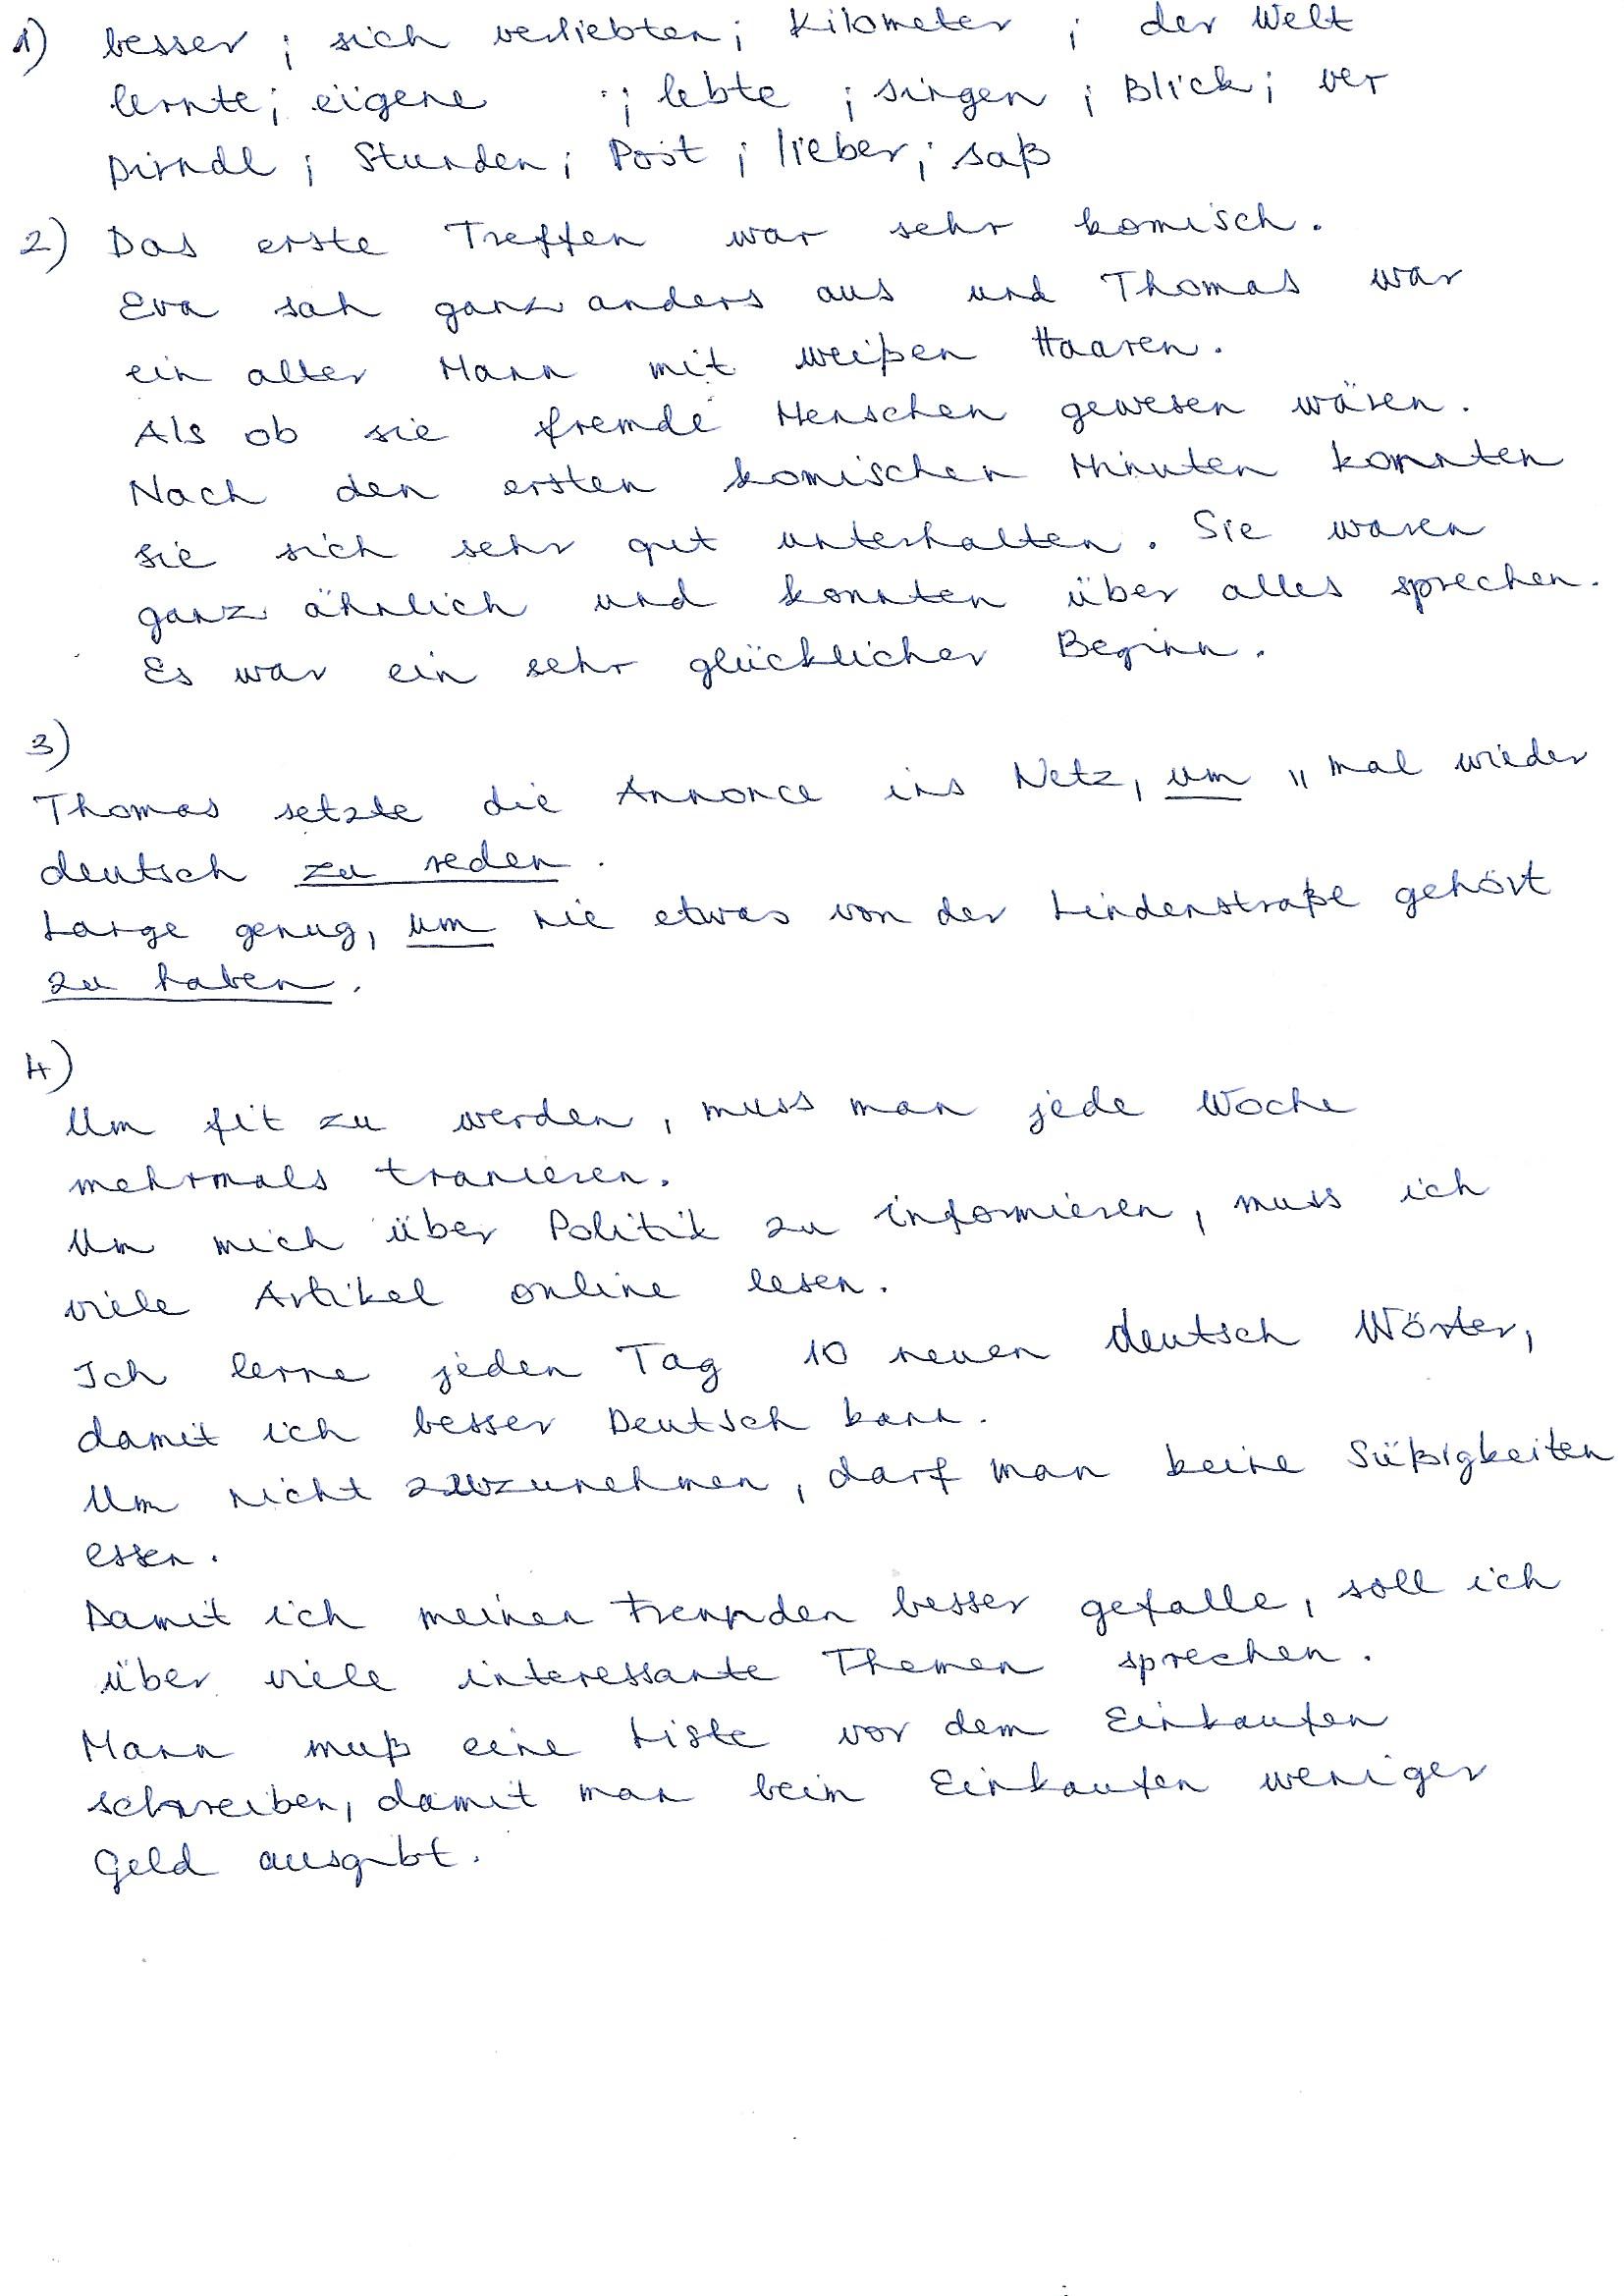 1) besser ; sich verliebten ; Kilometer ; der Welt
lernte ; eigene ; lebte ; singen ; Blick ; ver
Dirndl ; Stunden ; Post ; lieber ; saß
2) Das erste Treffen war sehr komisch.
Eva sah ganz anders aus und Thomas war
ein alter Mann mit weißen Haaren.
Als ob sie fremde Menschen gewesen wären.
Nach den ersten komischen Minuten konnten
sie sich sehr gut unterhalten. Sie waren
ganz ähnlich und konnten über alles sprechen.
Es war ein sehr glücklicher Beginn.
3)
Thomas setzte die Annonce ins Netz, um "mal wieder
deutsch zu reden.
Lange genug, um nie etwas von der Lindenstraße gehört
zu haben.
4)
Um fit zu werden, muss man jede Woche
mehrmals tranieren.
Um mich über Politik zu informieren, muss ich
viele Artikel online lesen.
Ich lerne jeden Tag 10 neuen deutsch Wörter,
damit ich besser Deutsch kann.
Um nicht zuzunehmen, darf man keine Süßigkeiten
essen.
Damit ich meinen Freunden besser gefalle, soll ich
über viele interessante Themen sprechen.
Mann muß eine Liste vor dem Einkaufen
schreiben, damit man beim Einkaufen weniger
Geld ausgibt.